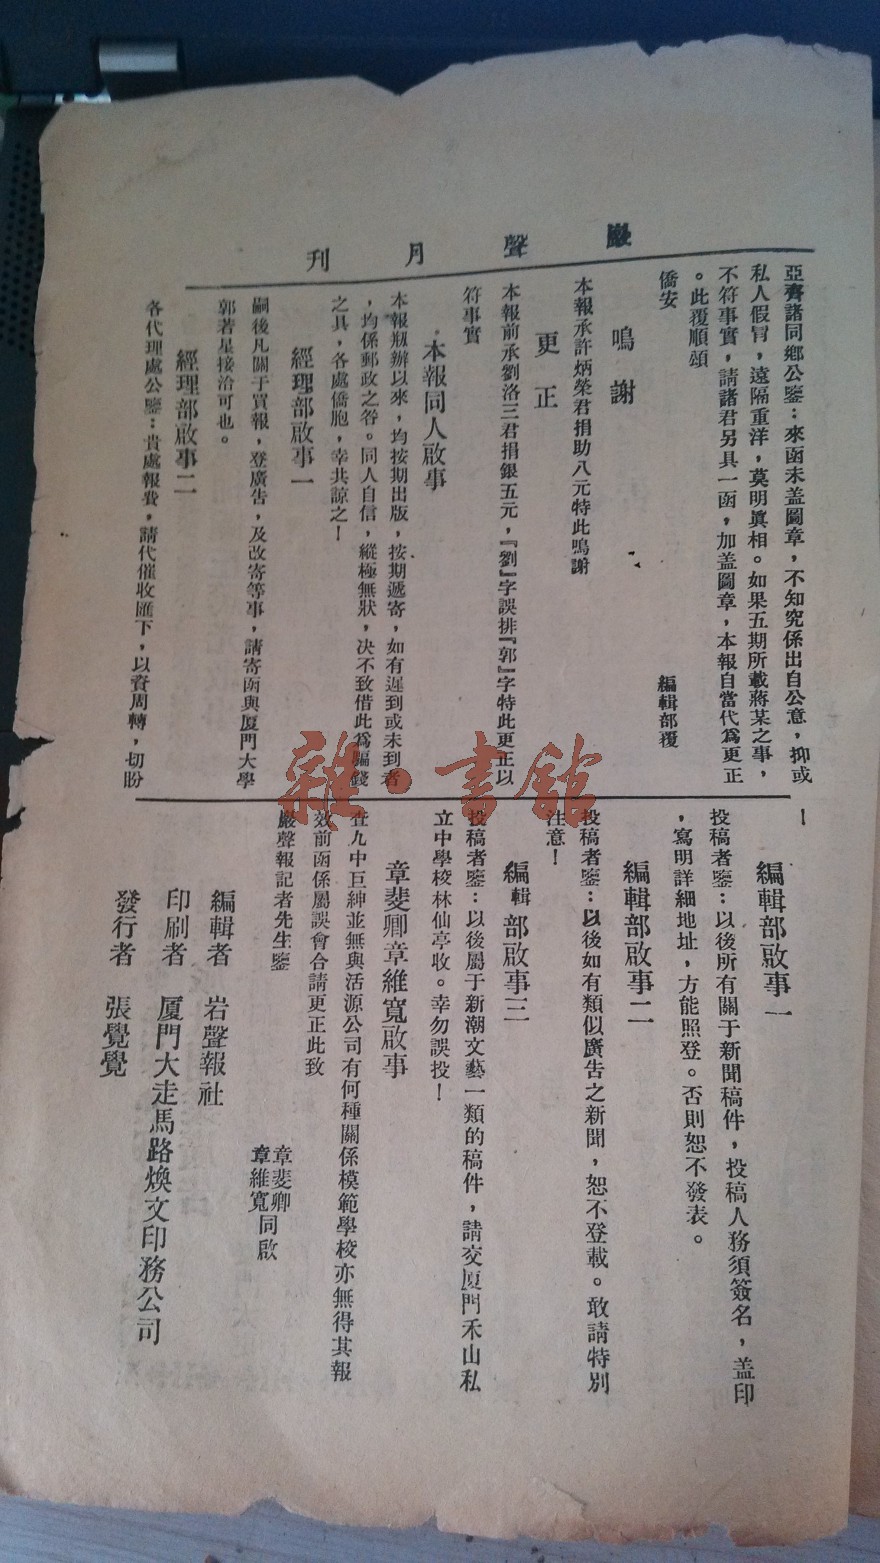 巖聲月刊
亞齊諸同鄉公鑒：來函未盖圖章，不知究係出自公意，抑或
私人假冒，遠隔重洋，莫明眞相。如果五期所載蔣某之事，
不符事實，請諸君另具一函，加盖圖章，本報自當代爲更正
。此覆順頌
僑安
編輯部覆
鳴謝
本報承許炳榮君捐助八元特此鳴謝
更正
本報前承劉洛三君捐銀五元，『劉』字誤排『郭』字特此更正以
符事實
本報同人啟事
本報剏辦以來，均按期出版，按期遞寄，如有遲到或未到者
，均係郵政之咎。同人自信，縱極無狀，决不致借此爲騙錢
之具，各處僑胞，幸共諒之！
經理部啟事一
嗣後凡關于買報，登廣告，及改寄等事，請寄函與厦門大學
郭若星接洽可也。
經理部啟事二
各代理處公鑒：貴處報費，請代催收匯下，以資周轉，切盼
！
編輯部啟事一
投稿者鑒：以後所有關于新聞稿件，投稿人務須簽名，盖印
，寫明詳細地址，方能照登。否則恕不發表。
編輯部啟事二
投稿者鑒：以後如有類似廣告之新聞，恕不登載。敢請特別
注意！
編輯部啟事三
投稿者鑒：以後屬于新潮文藝一類的稿件，請交厦門禾山私
立中學校林仙亭收。幸勿誤投！
章斐卿章維寬啟事
查九中巨紳並無與活源公司有何種關係模範學校亦無得其報
效前函係屬誤會合請更正此致
巖聲報記者先生鑒
章斐卿
章維寬同啟
編輯者　岩聲報社
印刷者　厦門大走馬路煥文印務公司
發行者　張覺覺
雜·書館